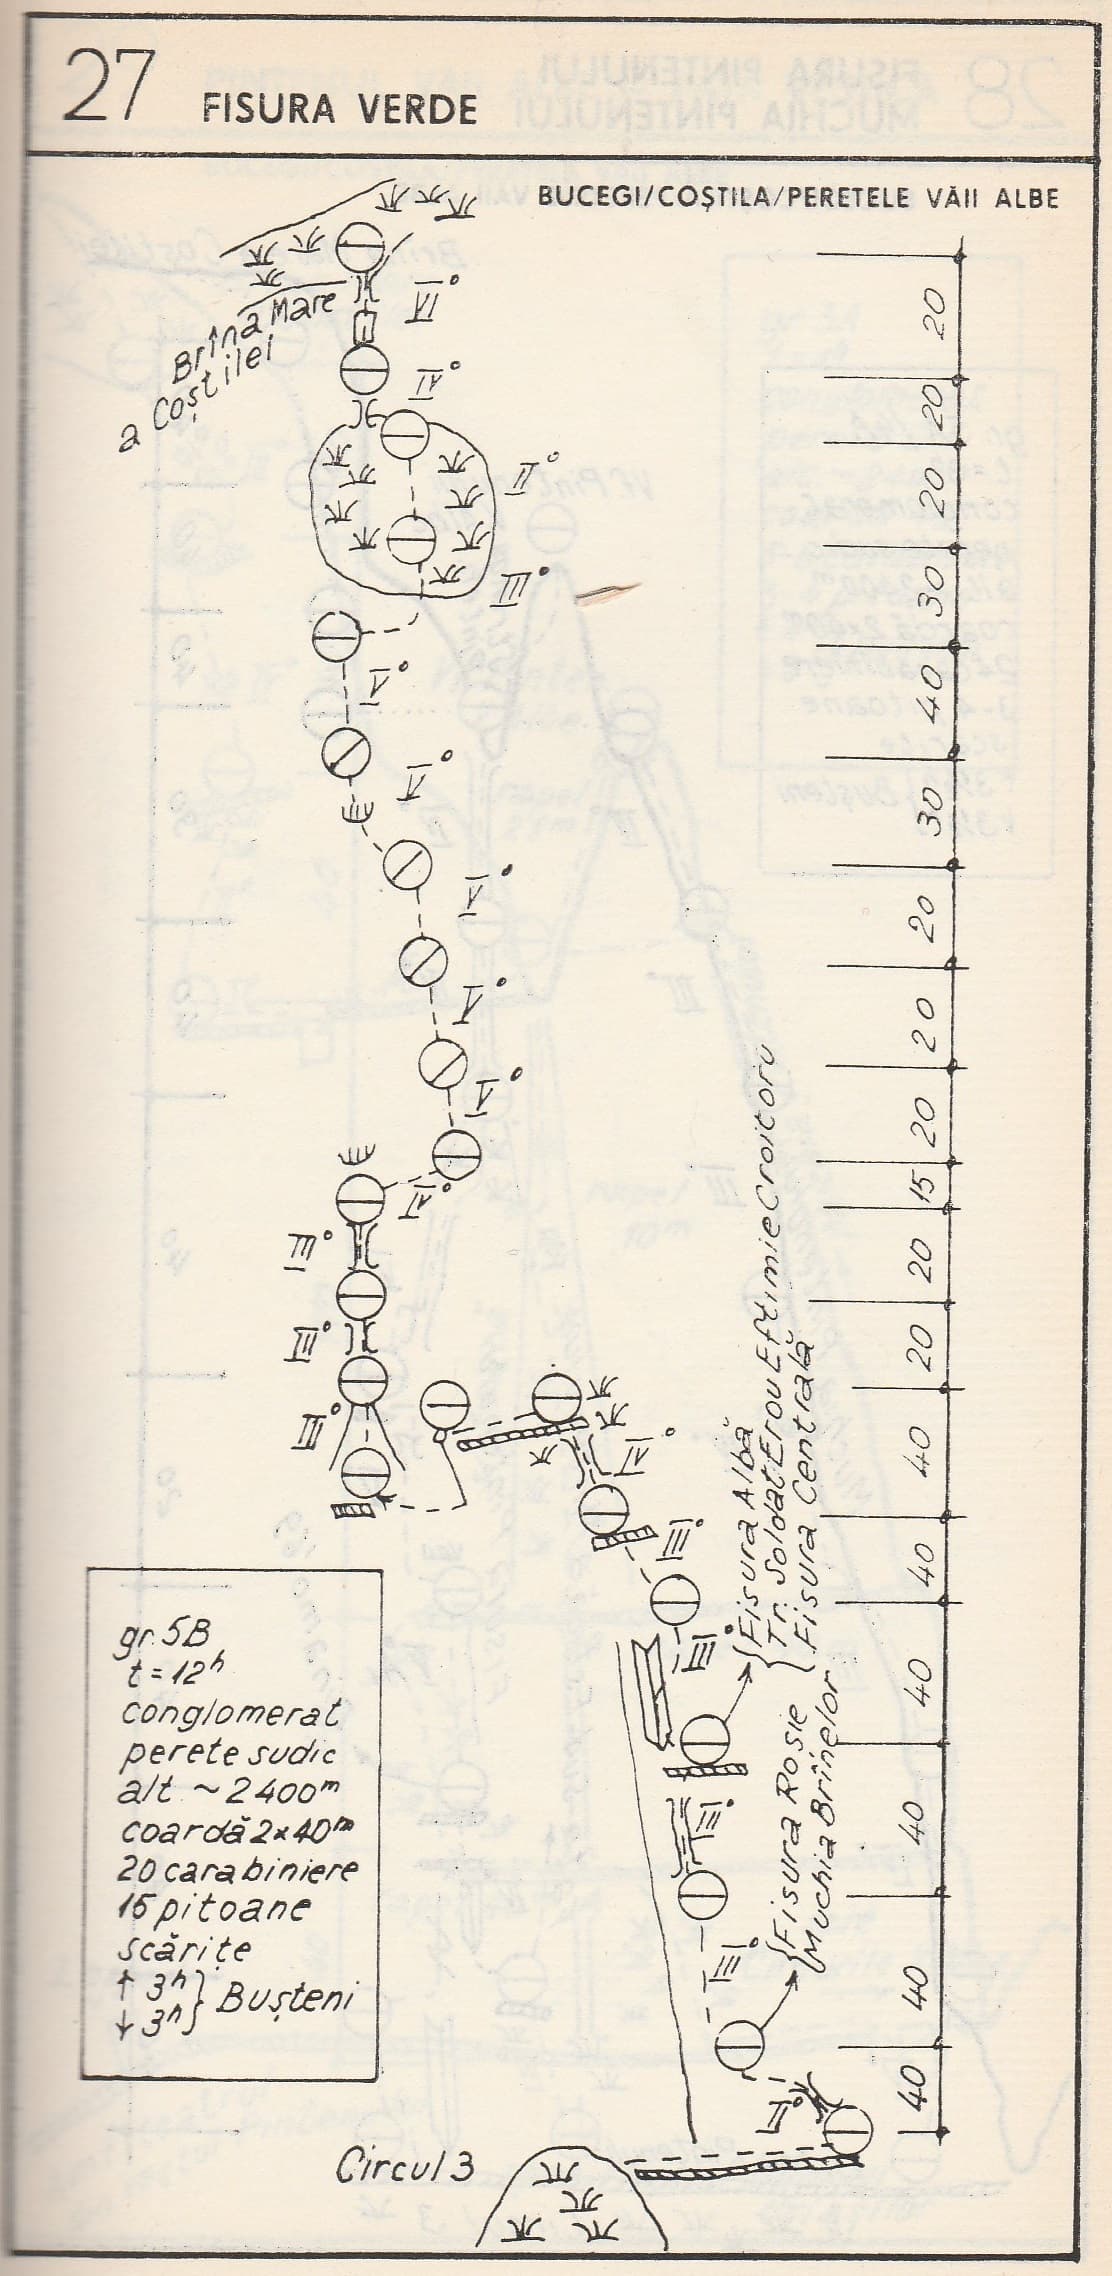 27 FISURA VERDE
BUCEGI/COȘTILA/PERETELE VĂII ALBE
Brîna Mare
a Coștilei
VI°
IV°
II°
III°
V°
V°
V°
V°
V°
IV°
III°
III°
III°
IV°
III°
III°
III°
III°
II°
20
20
20
30
40
30
20
20
20
15
20
20
40
40
40
40
40
40
Fisura Albă
Tr. Soldat Erou Eftimie Croitoru
Fisura Centrală
Fisura Rosie
Muchia Brînelor
gr. 5B
t = 12h
conglomerat
perete sudic
alt ~ 2400m
coardă 2x40m
20 carabiniere
15 pitoane
scărițe
↑ 3h } Bușteni
↓ 3h
Circul 3